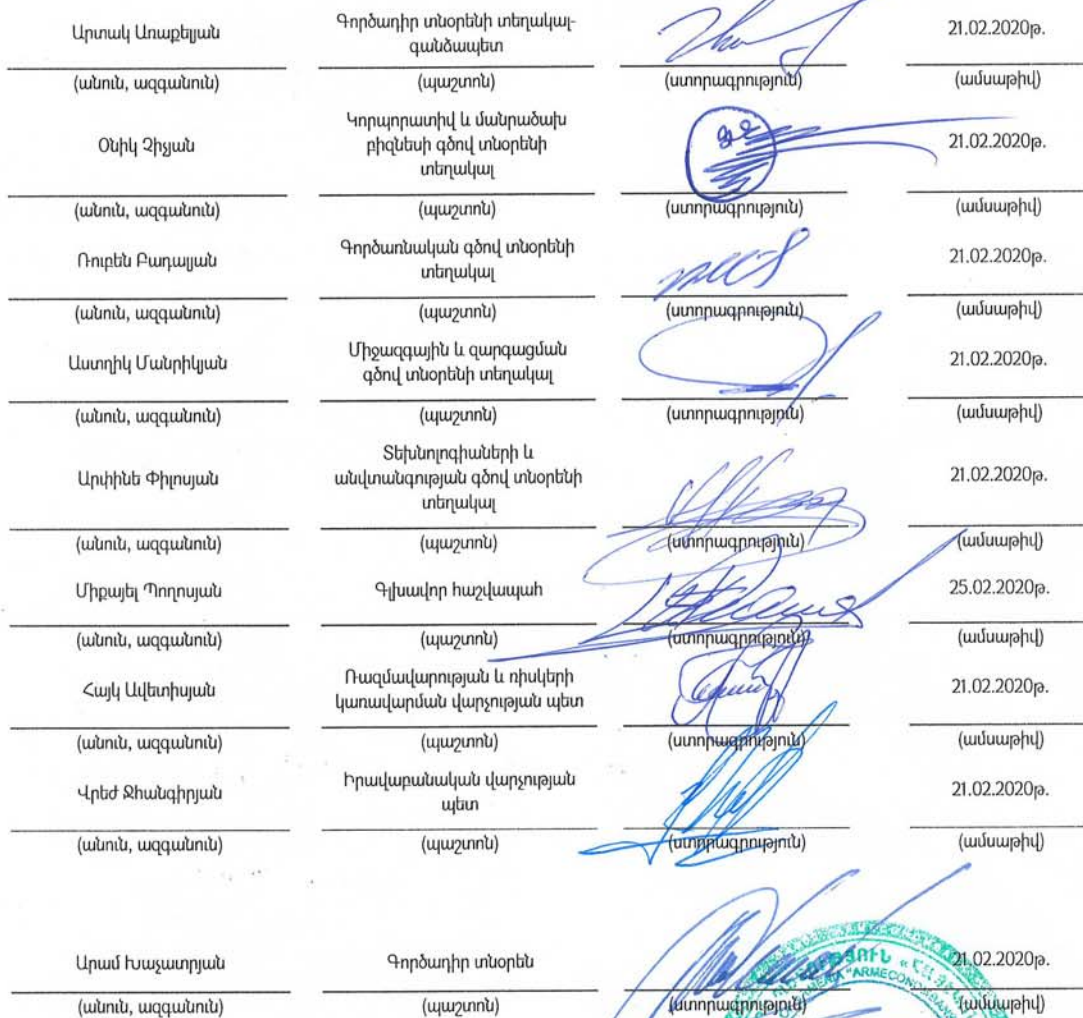 Արտակ Առաքելյան
Գործադիր տնօրենի տեղակալ-
գանձապետ
21.02.2020թ.
(անուն, ազգանուն) (պաշտոն) (ստորագրություն) (ամսաթիվ)
Օնիկ Չիչյան
Կորպորատիվ և մանրածախ
բիզնեսի գծով տնօրենի
տեղակալ
21.02.2020թ.
(անուն, ազգանուն) (պաշտոն) (ստորագրություն) (ամսաթիվ)
Ռուբեն Բադալյան
Գործառնական գծով տնօրենի
տեղակալ
21.02.2020թ.
(անուն, ազգանուն) (պաշտոն) (ստորագրություն) (ամսաթիվ)
Աստղիկ Մանրիկյան
Միջազգային և զարգացման
գծով տնօրենի տեղակալ
21.02.2020թ.
(անուն, ազգանուն) (պաշտոն) (ստորագրություն) (ամսաթիվ)
Արփինե Փիլոսյան
Տեխնոլոգիաների և
անվտանգության գծով տնօրենի
տեղակալ
21.02.2020թ.
(անուն, ազգանուն) (պաշտոն) (ստորագրություն) (ամսաթիվ)
Միքայել Պողոսյան
Գլխավոր հաշվապահ
25.02.2020թ.
(անուն, ազգանուն) (պաշտոն) (ստորագրություն) (ամսաթիվ)
Հայկ Ավետիսյան
Ռազմավարության և ռիսկերի
կառավարման վարչության պետ
21.02.2020թ.
(անուն, ազգանուն) (պաշտոն) (ստորագրություն) (ամսաթիվ)
Վրեժ Ջհանգիրյան
Իրավաբանական վարչության
պետ
21.02.2020թ.
(անուն, ազգանուն) (պաշտոն) (ստորագրություն) (ամսաթիվ)
Արամ Խաչատրյան
Գործադիր տնօրեն
21.02.2020թ.
(անուն, ազգանուն) (պաշտոն) (ստորագրություն) (ամսաթիվ)